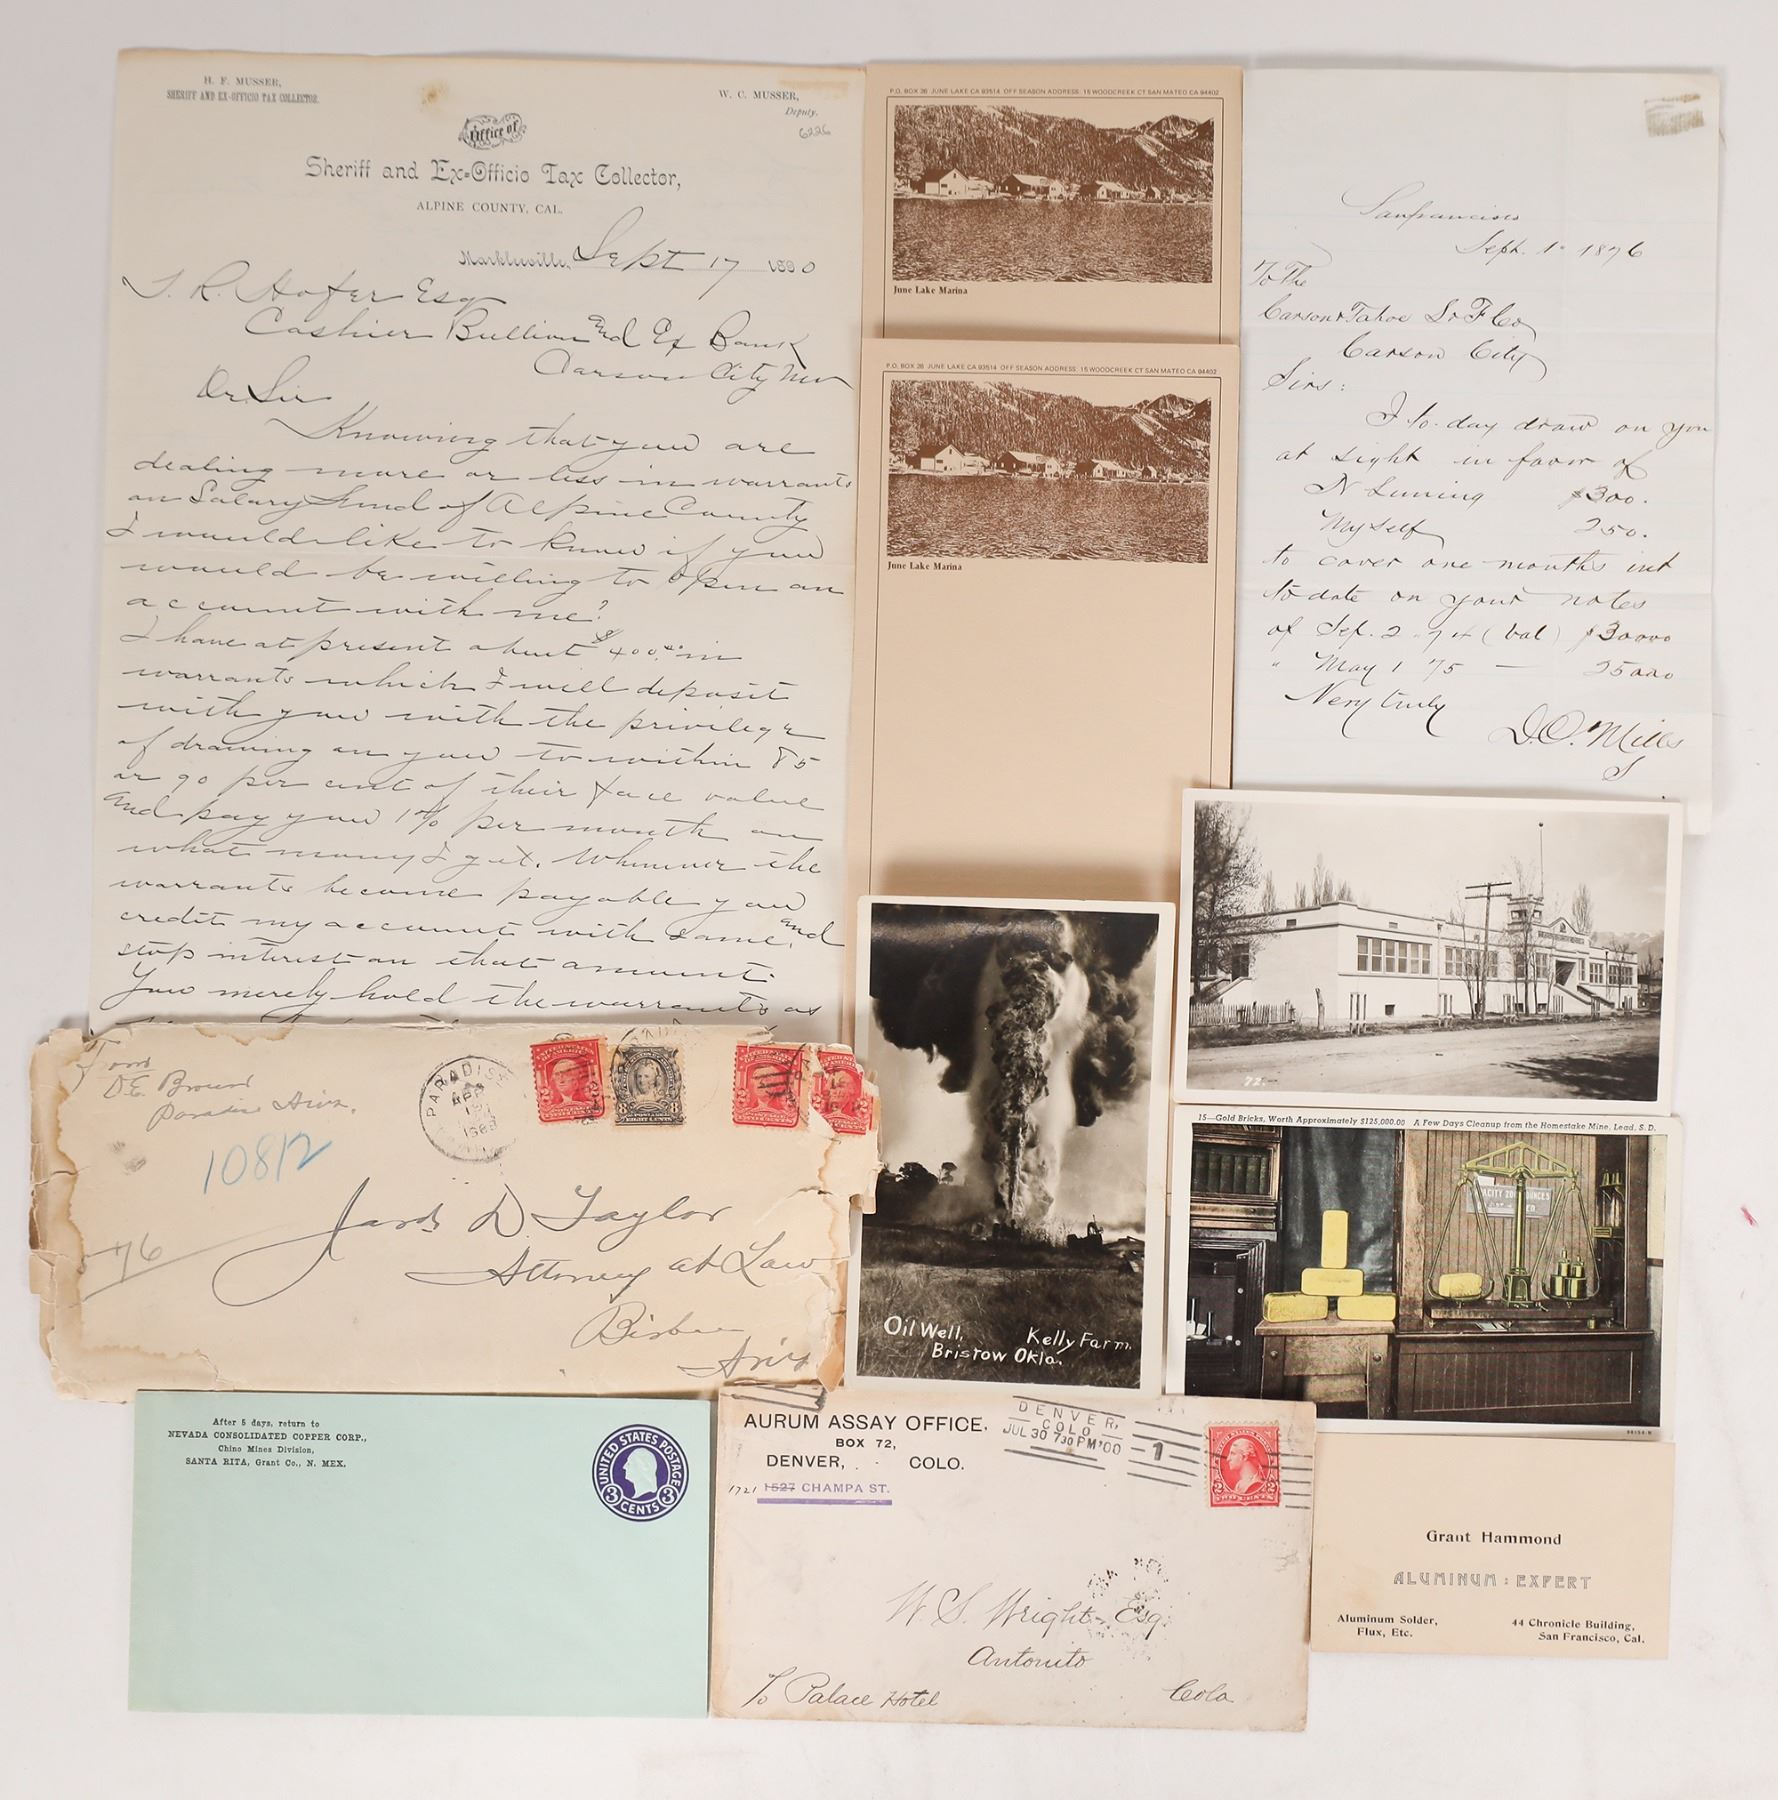 H. F. MUSSER,
SHERIFF AND EX-OFFICIO TAX COLLECTOR.
W. C. MUSSER,
Deputy.
6226
Office of
Sheriff and Ex=Officio Tax Collector,
ALPINE COUNTY, CAL.
Markleeville, Sept 17 1890
T. R. Hofer Esq
Cashier Bullion and Ex Bank
Carson City Nev
Dr. Sir
Knowing that you are
dealing more or less in warrants
on Salary Fund of Alpine County
I would like to know if you
would be willing to open an
account with me?
I have at present about $400.00 in
warrants which I will deposit
with you with the privilege
of drawing on you to within 85
or 90 per cent of their face value
and pay you 1% per month on
what money I get. Whenever the
warrants become payable you
credit my account with same and
stop interest on that amount.
You merely hold the warrants as
P.O. BOX 26 JUNE LAKE CA 93514 OFF SEASON ADDRESS: 15 WOODCREEK CT SAN MATEO CA 94402
June Lake Marina
P.O. BOX 26 JUNE LAKE CA 93514 OFF SEASON ADDRESS: 15 WOODCREEK CT SAN MATEO CA 94402
June Lake Marina
Sanfrancisco
Sept. 1st 1876
To The
Carson & Tahoe L & F Co
Carson City
Sirs:
I to-day draw on you
at sight in favor of
N Luning $300.
Myself 250.
to cover one months int
to date on your notes
of Sep. 2 -74 (bal) $30000
" May 1 75 — 25000
Very truly
D. O. Mills
S
72-
15—Gold Bricks, Worth Approximately $125,000.00 A Few Days Cleanup from the Homestake Mine, Lead, S. D.
Oil Well, Kelly Farm.
Bristow Okla.
From
D.E. Brown
Paradise Ariz.
PARADISE
APR
10812
76
UNITED STATES
OF AMERICA
EIGHT CENTS
D. Taylor
Attorney at Law
Bisbee
Ariz
After 5 days, return to
NEVADA CONSOLIDATED COPPER CORP.,
Chino Mines Division,
SANTA RITA, Grant Co., N. MEX.
UNITED STATES POSTAGE
3 CENTS 3
AURUM ASSAY OFFICE,
BOX 72,
DENVER, COLO.
1721 1527 CHAMPA ST.
DENVER,
COLO.
JUL 30 730PM '00
1
W. S. Wright Esq.
Antonito
c/o Palace Hotel Colo
Grant Hammond
ALUMINUM : EXPERT
Aluminum Solder,
Flux, Etc.
44 Chronicle Building,
San Francisco, Cal.